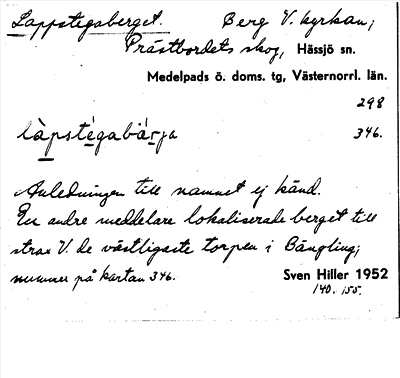 Lappstegaberget. Berg V. kyrkan,
Prästbordets skog, Hässjö sn.
Medelpads ö. doms. tg, Västernorrl. län.
298
làpstégabärja 346.
Anledningen till namnet ej känd.
En andre meddelare lokaliserade berget till
strax V. de västligaste torpen i Bängling;
nummer på kartan 346. Sven Hiller 1952
140. 155.